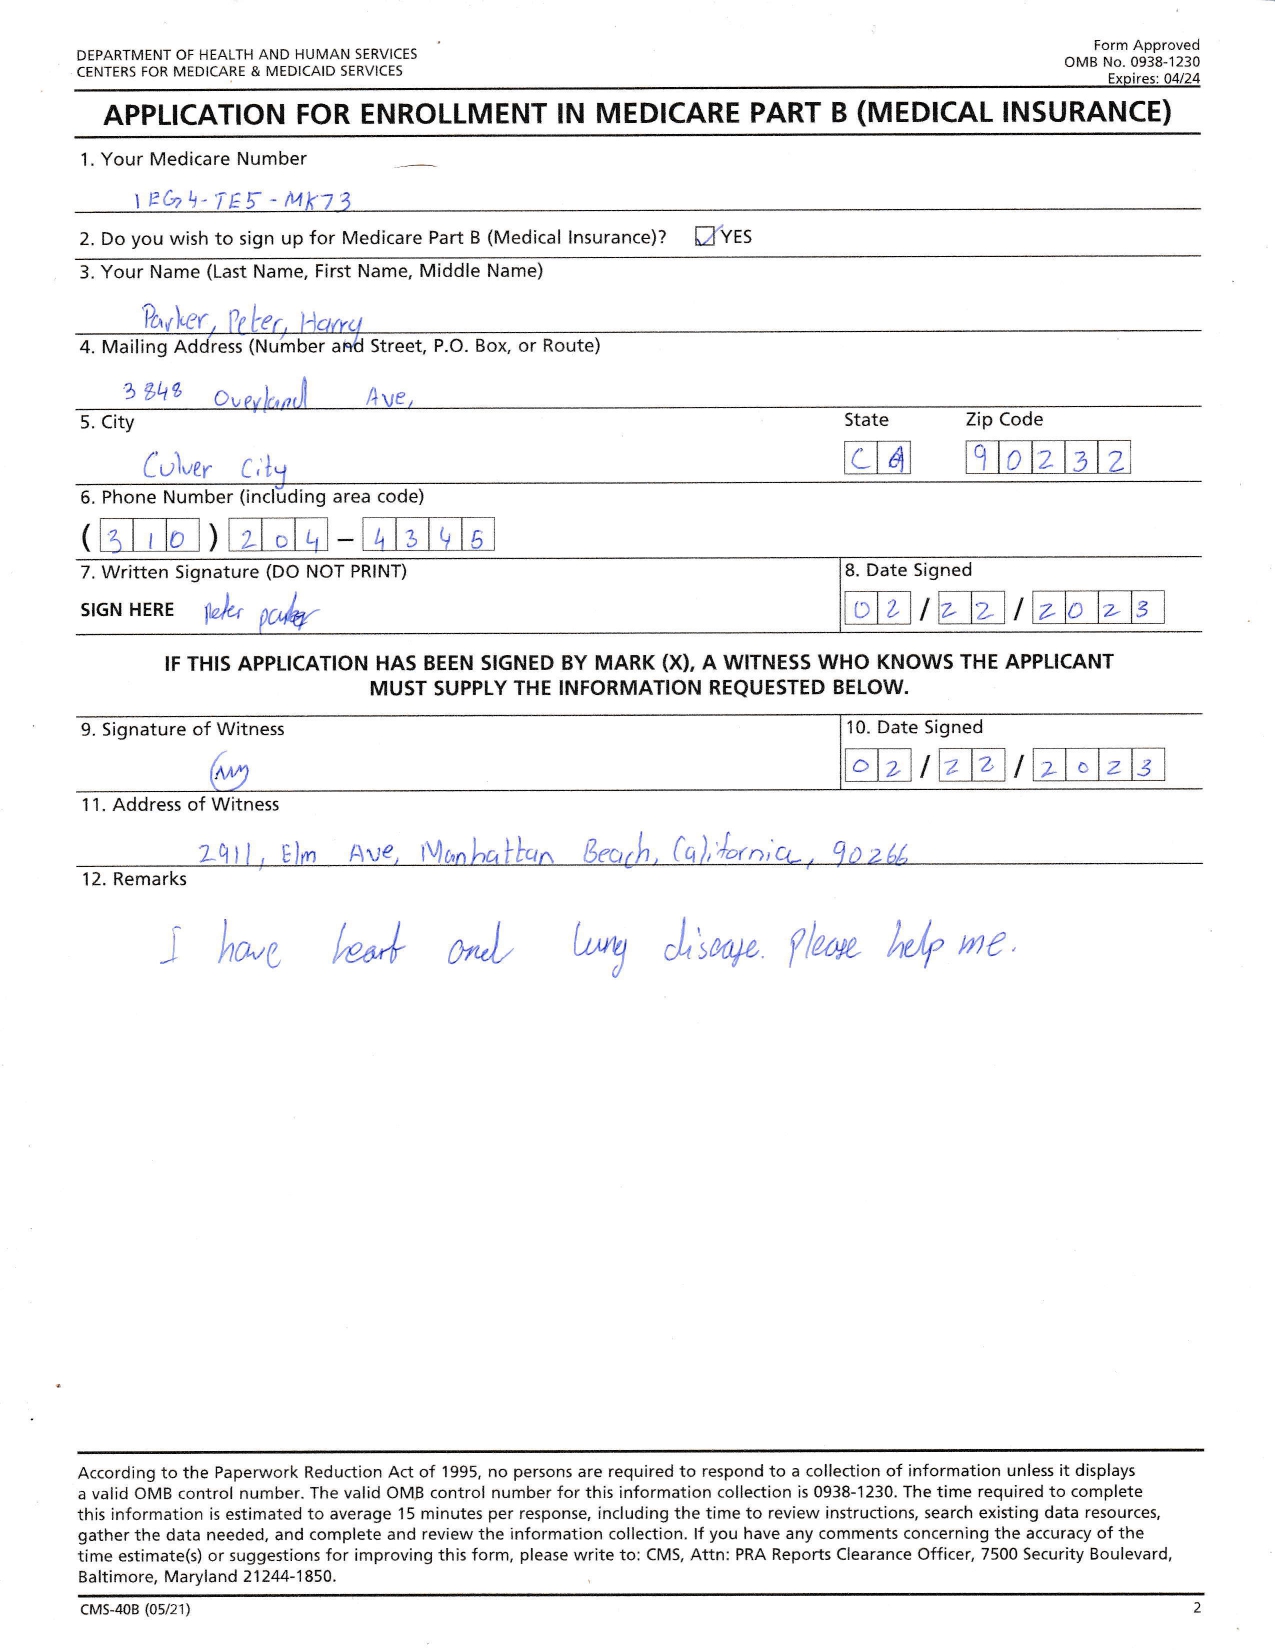 DEPARTMENT OF HEALTH AND HUMAN SERVICES
CENTERS FOR MEDICARE & MEDICAID SERVICES
Form Approved
OMB No. 0938-1230
Expires: 04/24
APPLICATION FOR ENROLLMENT IN MEDICARE PART B (MEDICAL INSURANCE)
1. Your Medicare Number
1EG4-TE5-MK73
2. Do you wish to sign up for Medicare Part B (Medical Insurance)? YES
3. Your Name (Last Name, First Name, Middle Name)
Parker, Peter, Harry
4. Mailing Address (Number and Street, P.O. Box, or Route)
3848 Overland Ave,
5. City State Zip Code
Culver City CA 90232
6. Phone Number (including area code)
(310) 204-4345
7. Written Signature (DO NOT PRINT) 8. Date Signed
SIGN HERE Peter parker 02/22/2023
IF THIS APPLICATION HAS BEEN SIGNED BY MARK (X), A WITNESS WHO KNOWS THE APPLICANT
MUST SUPPLY THE INFORMATION REQUESTED BELOW.
9. Signature of Witness 10. Date Signed
02/22/2023
11. Address of Witness
2911, Elm Ave, Manhattan Beach, California, 90266
12. Remarks
I have heart and lung disease. please help me.
According to the Paperwork Reduction Act of 1995, no persons are required to respond to a collection of information unless it displays
a valid OMB control number. The valid OMB control number for this information collection is 0938-1230. The time required to complete
this information is estimated to average 15 minutes per response, including the time to review instructions, search existing data resources,
gather the data needed, and complete and review the information collection. If you have any comments concerning the accuracy of the
time estimate(s) or suggestions for improving this form, please write to: CMS, Attn: PRA Reports Clearance Officer, 7500 Security Boulevard,
Baltimore, Maryland 21244-1850.
CMS-40B (05/21) 2